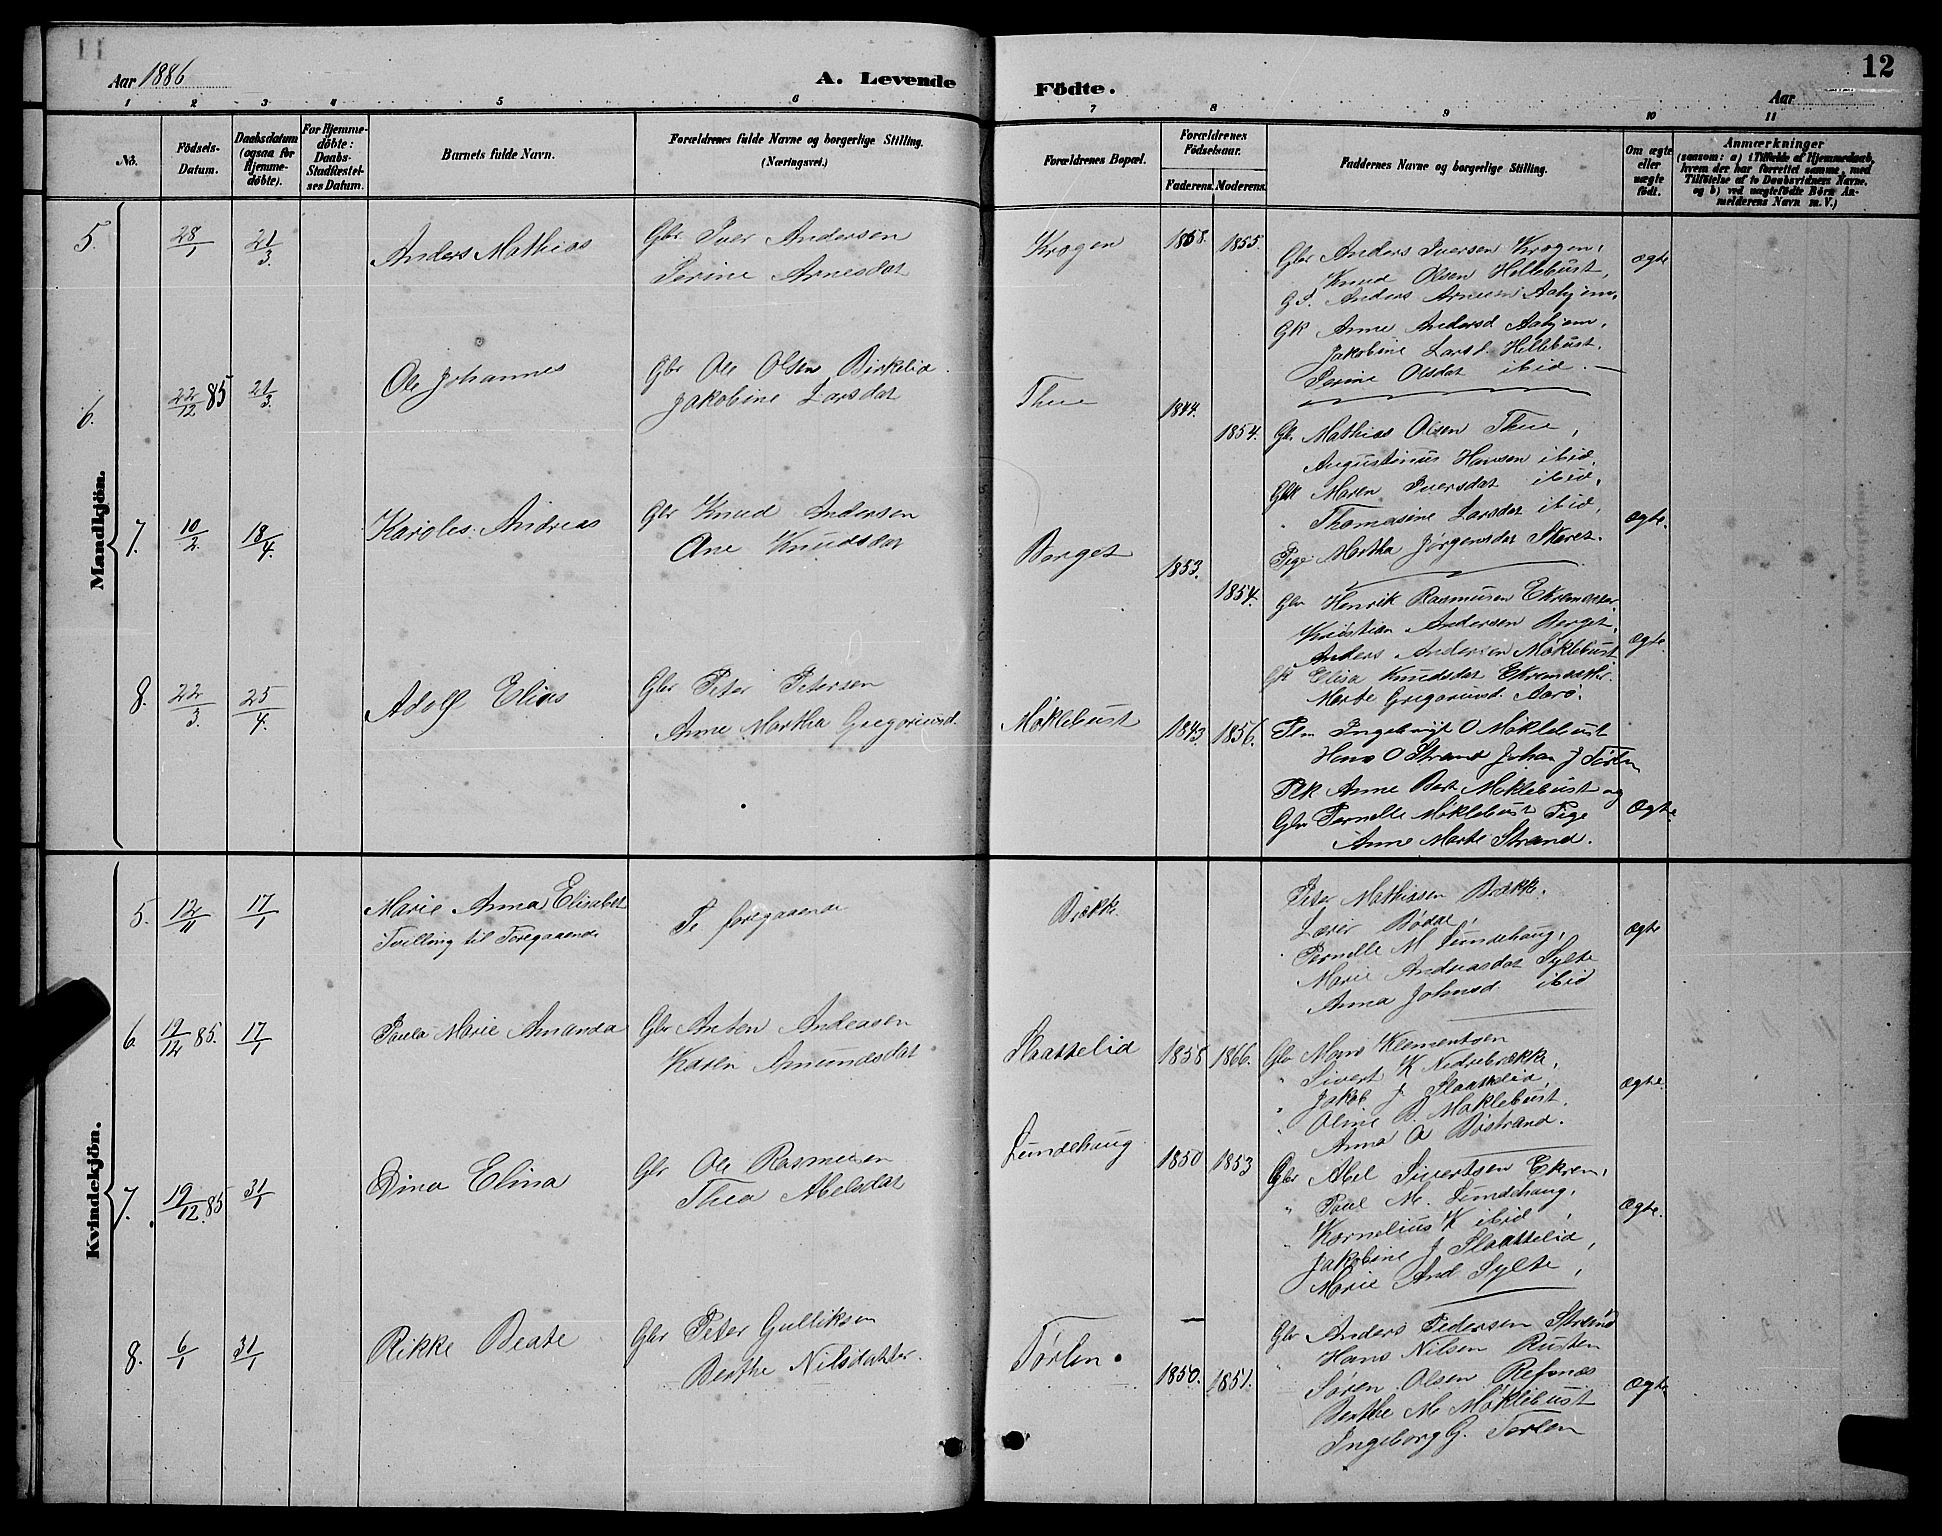 11
Aar 1886
A. Levende
Födte.
12
Aar
1 2 3 4 5 6 7 8 9 10 11
No.
Födsels-
Datum.
Daabsdatum
(ogsaa for
Hjemme-
döbte).
For Hjemme-
döbte:
Daabs-
Stadfæstel-
ses Datum.
Barnets fulde Navn.
Forældrenes fulde Navne og borgerlige Stilling.
(Næringsvei.)
Forældrenes Bopæl.
Forældrenes
Födselsaar.
Faderens. Moderens.
Faddernes Navne og borgerlige Stilling.
Om ægte
eller
uægte
födt.
Anmærkninger
(saasom: a) i Tilfælde af Hjemmedaab,
hvem der har forrettet samme, med
Tilföielse af to Daabsvidners Navne,
og b) ved uægtefödte Börn An-
melderens Navn m. V.)
Mandkjön.
5. 28/1 21/3. Anders Mathias
Gbr Iver Andersen
Serine Arnesdat
Krogen 1858. 1855.
Gbr Anders Iversen Krogen,
Knud Olsen Hellebust,
Anders Arnesen Aahjem,
Gk Anne Andersd Aahjem,
Jakobine Larsd. Hellebust,
Serine Olsdat ibid.
ægte
6. 22/12 85 21/3. Ole Johannes
Gbr Ole Olsen Birkelid.
Jakobine Larsdat
Thue 1844. 1854.
Gbr Mathias Olsen Thue,
Augustinus Hansen ibid,
Gbk Maren Iversdat ibid,
" Thomasine Larsdat ibid,
Pige Martha Jørgensdat Støret.
Ægte.
7. 10/2. 18/4. Karoles Andreas
Gbr Knud Andersen
Ane Knudsdat
Berget 1853. 1854.
Gbr Henrik Rasmusen
Kristian Andersen Berget,
Anders Andersen Møklebust
Gk Elisa Knudsdat
Marte Gregoriusd. Aarø.
Ægte.
8. 22/3. 25/4. Adolf Elias
Gbr Peter Petersen
Anne Martha Gregoriusd.
Møklebust 1843. 1856.
Ingebrigt O Møklebust
Hans O Strand Johan J Tørlen
Anne Bert Møklebust og
Gbr Pernelle Møklebust Pige
Anne Marte Strand.
Ægte.
Kvindekjön.
5. 12/11 17/1 Marie Anna Elisabet
Tvilling til Foregaaende
Se foregaaende
Brække.
Peter Mathissen Brække.
Lærer Bødal,
Pernelle M Lundehaug,
Marie Andreasdat Sylte
Anna Johnsd. ibid
Ægte
6. 12/12 85. 17/1 Paula Marie Amanda
Gbr Anton Andersen
Karen Amundsdat
Slaattelid 1858 1866.
Gbr Mons Klementsen
" Sivert K Nedrebrække,
" Jakob J. Slaattelid,
" Oline B. Møklebust.
Anna A Bøstrand.
Ægte.
7. 19/12. 85 31/1 Dina Elina
Gbr Ole Rasmusen
Thea Abelsdat
Lundehaug 1850 1853
Gbr Abel Sivertsen Ekrem,
" Paul M. Lundehaug,
" Kornelius K ibid,
Jakobine J Slaattelid,
Marie And Sylte,
Ægte.
8. 6/1 31/1 Rikke Beate
Gbr Peter Gulliksen
Berthe Nilsdatter.
Tørlen. 1850. 1851.
Gbr Anders Pedersen Strand
" Hans Nilsen Rusten
Søren Olsen Refsnæs
Berthe M Møklebust
Ingeborg G. Tørlen
Ægte